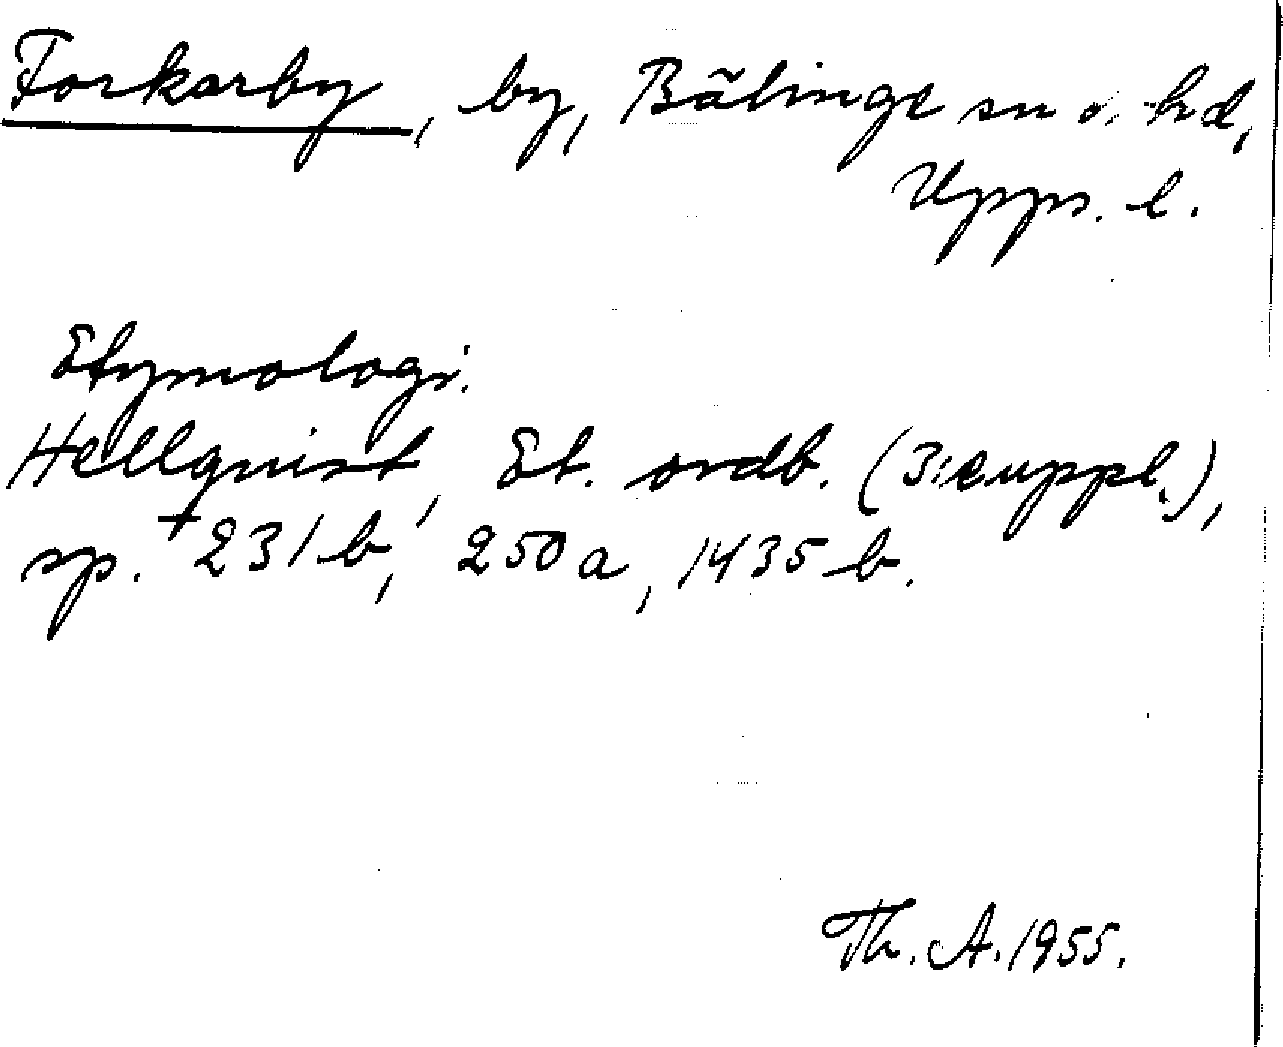 Forkarby, by, Bälinge sn o. hd,
Upps. l.
Etymologi.
Hellquist, Et. ordb. (3:e uppl.),
sp. 231 b, 250 a, 1435 b.
Th. A. 1955.